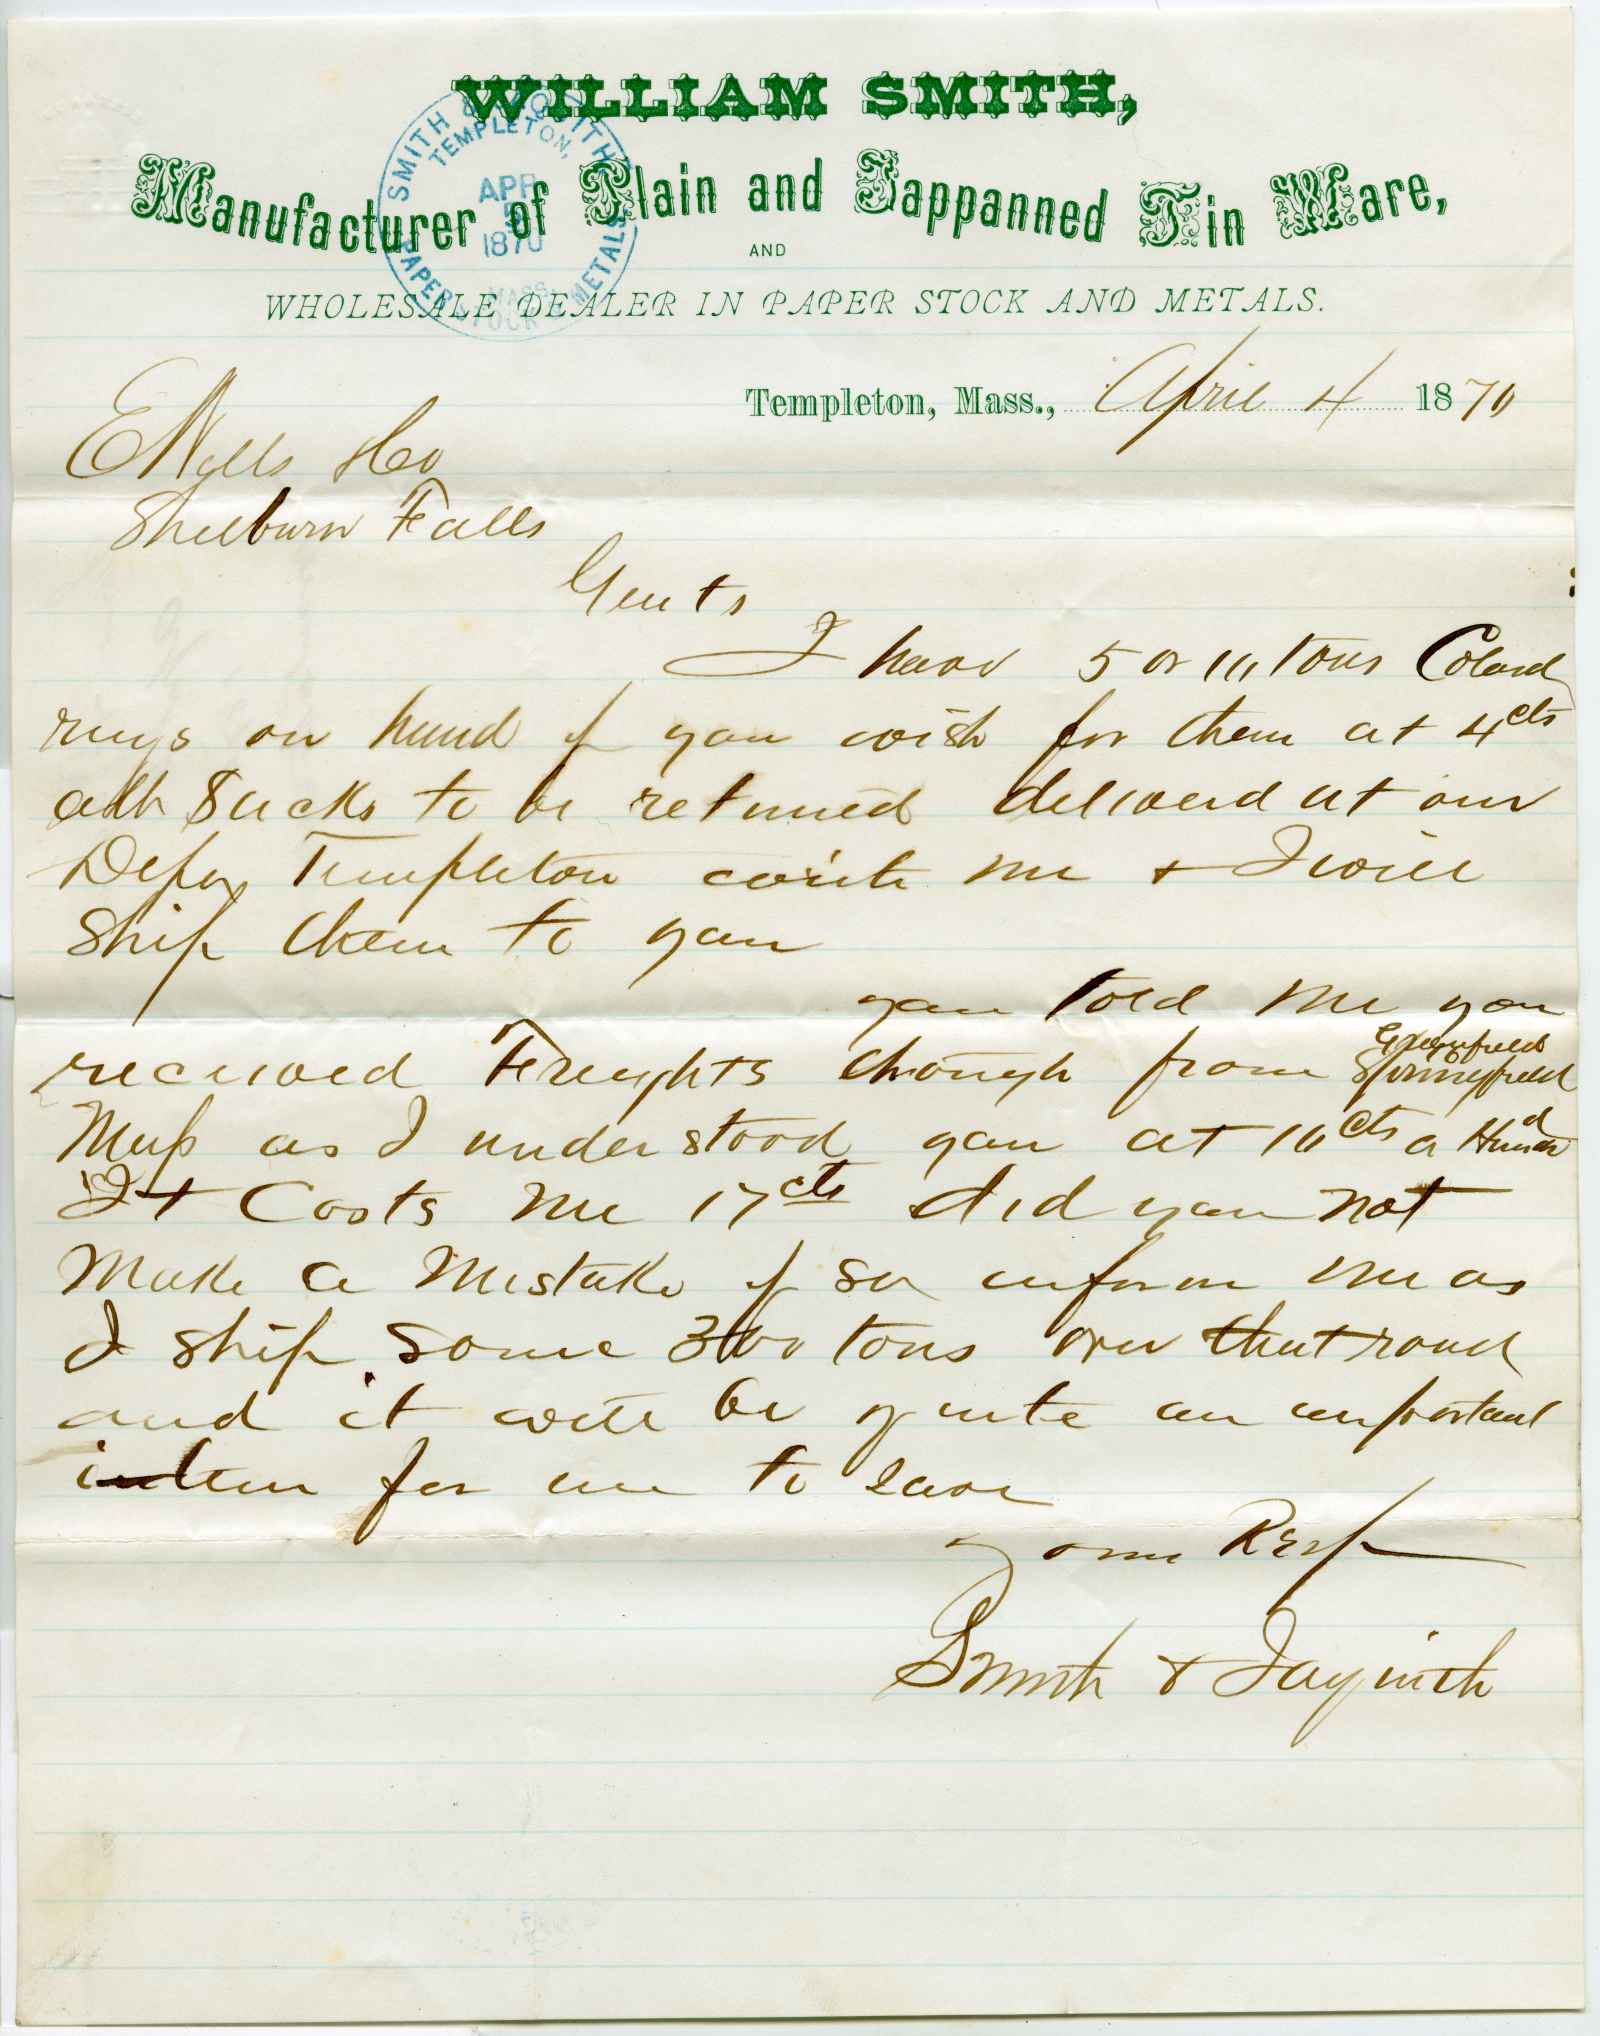 WILLIAM SMITH,
Manufacturer of Plain and Jappanned Tin Ware,
AND
WHOLESALE DEALER IN PAPER STOCK AND METALS.
SMITH &
TEMPLETON,
APR
5
1870
MASS.
PAPER STOCK METALS
Templeton, Mass., April 4 1870
E Wells & Co
Shelburn Falls
Gents
I have 5 or 10 tons Colard
rags on hand if you wish for them at 4cts
all Sacks to be returned deliverd at our
Depo Templeton write me & I will
Ship them to you
you told me you
received Freights through from Greenfield
Springfield
Mass as I understood you at 10cts a Hundred
It Costs me 17cts did you not
Make a Mistake if so inform me as
I ship some 300 tons over that road
and it will be quite an important
item for me to save
Yours Resp
Smith &